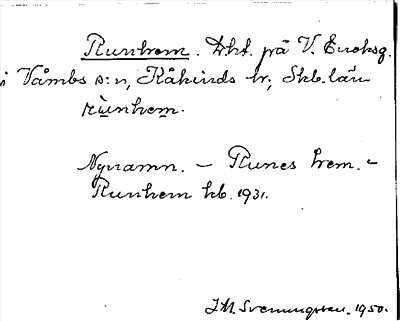 Runhem. Lht. på V. Enoksg.
i Våmbs s:n, Kåkinds hd; Skb. län
rùnhem.
Nynamn. – Runes hem. –
Runhem kb. 1931.
I. M. Svenungsson. 1950.